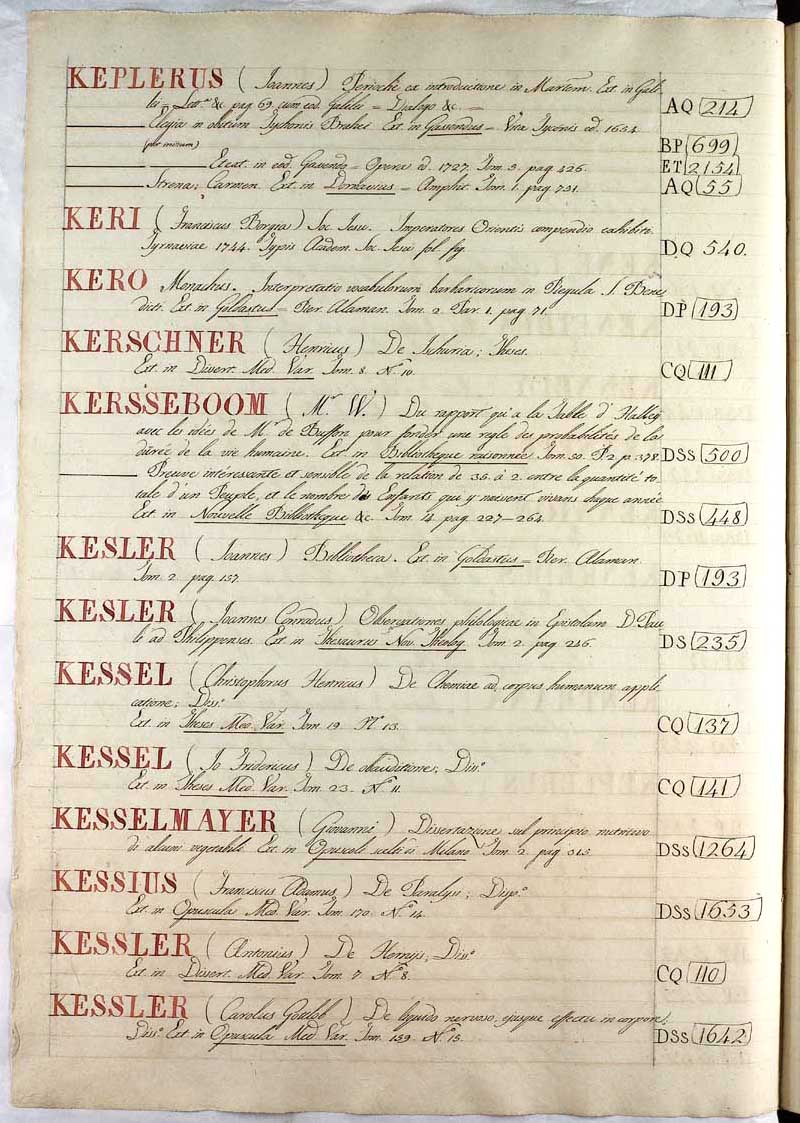 KEPLERUS (Joannes) Perioche ex introductione in Martem. Ext. in Gali-
lei = &c. pag. 69. cum eod. Galilei = Dialogo &c. = AQ 214
——— Elegia in obitum Tychonis Brahei. Ext. in Gassendus = Vita Tyconis ed. 1654. BP 699
(per incisum)
——— Etext. in eod. Gassendo = Opera ed. 1727. Tom. 5. pag. 426. ET 2154
——— Strena; Carmen. Ext. in Dornavius = Amphit. Tom. 1. pag. 751. AQ 55
KERI (Franciscus Borgia) Soc. Jesu. Imperatores Orientis compendio exhibiti.
Tyrnaviae 1744. Typis Academ. Soc. Jesu fol. fig. DQ 540.
KERO Monachus. Interpretatio vocabulorum barbaricorum in Regula S. Bene-
dicti. Ext. in Goldastus = Rer. Alaman. Tom. 2. Par. 1. pag. 71. DP 193
KERSCHNER (Henricus) De Ischuria; Theses.
Ext. in Dissert. Med. Var. Tom. 8. N.° 10. CQ 111
KERSSEBOOM (M.r W.) Du rapport qu'a la Table d'Halley
avec les idées de M.r de Buffon pour fonder une regle des probabilités de la
durée de la vie humaine. Ext. in Bibliotheque raisonnée Tom. 50. P. 2 p. 378. DSs 500
——— Preuve intéressante et sensible de la relation de 35. à 2. entre la quantité to-
tale d'un Peuple, et le nombre des Enfants qui y naissent vivans chaque année.
Ext. in Nouvelle Bibliotheque &c. Tom. 14. pag. 227–264. DSs 448
KESLER (Joannes) Bibliotheca. Ext. in Goldastus = Rer. Alaman.
Tom. 2. pag. 157. DP 193
KESLER (Joannes Conradus) Observationes philologicae in Epistolam D. Pau-
li ad Philippenses. Ext. in Thesaurus Nov. Tom. 2. pag. 246. DS 235
KESSEL (Christophorus Henricus) De Chemiae ad corpus humanum appli-
catione; Diss.°
Ext. in Theses Med. Var. Tom. 19. N.° 13. CQ 137
KESSEL (Jo. Fridericus) De obauditione; Diss.°
Ext. in Theses Med. Var. Tom. 23. N.° 11. CQ 141
KESSELMAYER (Giovanni) Dissertazione sul principio nutritivo
di alcuni vegetabili. Ext. in Opuscoli scelti di Milano Tom. 2. pag. 313. DSs 1264
KESSIUS (Franciscus Adamus) De Paralysi; Disp.°
Ext. in Opuscula Med. Var. Tom. 170. N.° 14. DSs 1653
KESSLER (Antonius) De Herniis; Diss.°
Ext. in Dissert. Med. Var. Tom. 7. N.° 8. CQ 110
KESSLER (Carolus Gottlob) De liquido nervoso, ejusque effectu in corpore;
Diss.° Ext. in Opuscula Med. Var. Tom. 159. N.° 15. DSs 1642